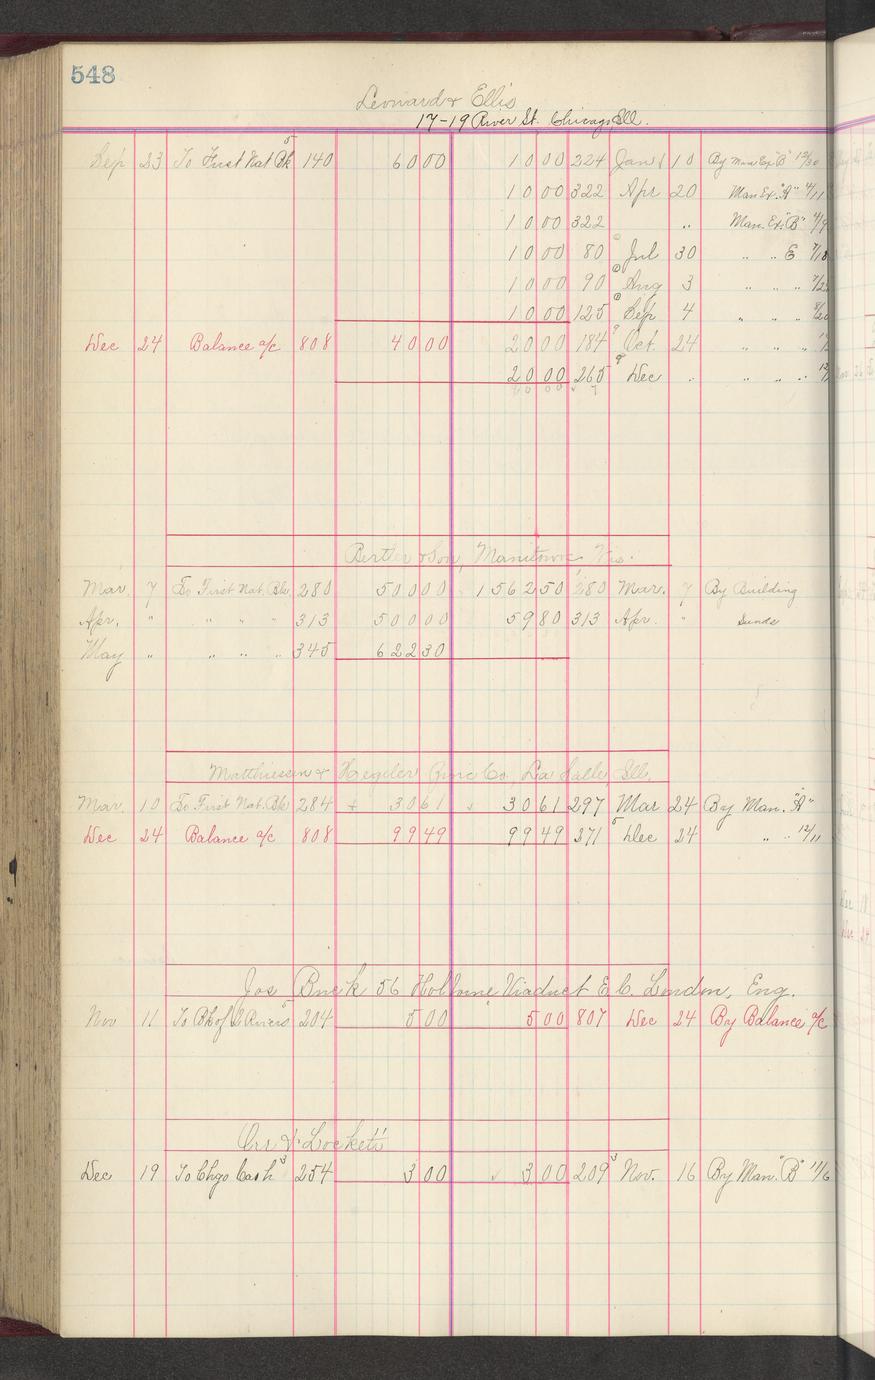 548
Leonard & Ellis
17-19 River St. Chicago, Ill.
Sep 23 To First Nat Bk 5 140 60 00 10 00 224 Jan 10 By Man Ex "B" 12/30
10 00 322 Apr 20 Man Ex. "A" 4/11
10 00 322 " Man. Ex. "B" 4/9
10 00 80 Jul 30 " " E 7/18
10 00 90 Aug 3 " " "
10 00 125 Sep 4 " " " 8/20
Dec 24 Balance a/c 808 40 00 20 00 184 Oct. 24 " " "
20 00 265 Dec " " " "
Bertler & Son, Manitowoc, Wis.
Mar. 7 To First Nat. Bk. 280 500 00 1562 50 280 Mar. 7 By Building
Apr. " " " " 313 500 00 59 80 313 Apr. " Sunds
May " " " " 345 622 30
Matthiessen & Hegeler Zinc Co. La Salle, Ill.
Mar. 10 To First Nat. Bk 284 30 61 30 61 297 Mar 24 By Man. "A"
Dec 24 Balance a/c 808 99 49 99 49 271 5 Dec 24 " " 12/11
Jos Buck 56 Holborne Viaduct E. C. London, Eng.
Nov 11 To Bk of 2 Rivers 5 204 5 00 5 00 807 Dec 24 By Balance a/c
Orr & Lockett
Dec 19 To Chgo Cash 3 254 3 00 3 00 209 3 Nov. 16 By Man. "B" 11/6